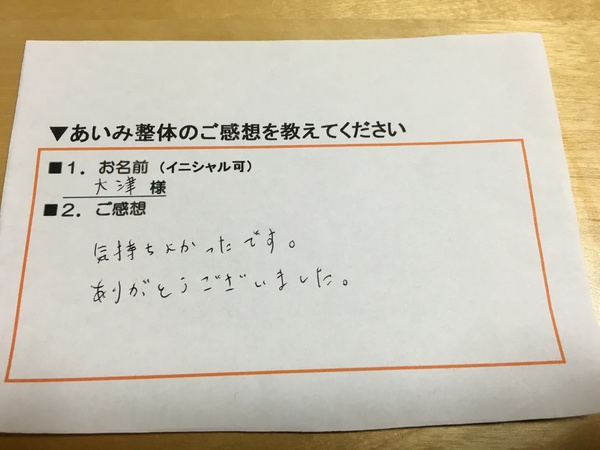 ▼あいみ整体のご感想を教えてください
■1. お名前（イニシャル可）
大津 様
■2. ご感想
気持ちよかったです。
ありがとうございました。